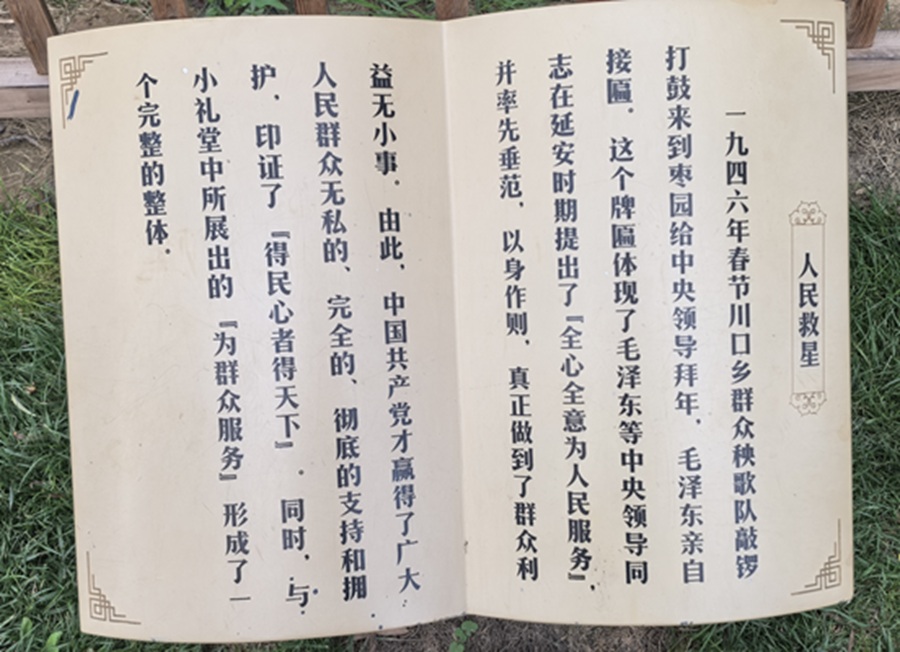 人民救星
一九四六年春节川口乡群众秧歌队敲锣
打鼓来到枣园给中央领导拜年，毛泽东亲自
接匾。这个牌匾体现了毛泽东等中央领导同
志在延安时期提出了『全心全意为人民服务』，
并率先垂范，以身作则，真正做到了群众利
益无小事。由此，中国共产党才赢得了广大
人民群众无私的、完全的、彻底的支持和拥
护，印证了『得民心者得天下』。同时，与
小礼堂中所展出的『为群众服务』形成了一
个完整的整体。